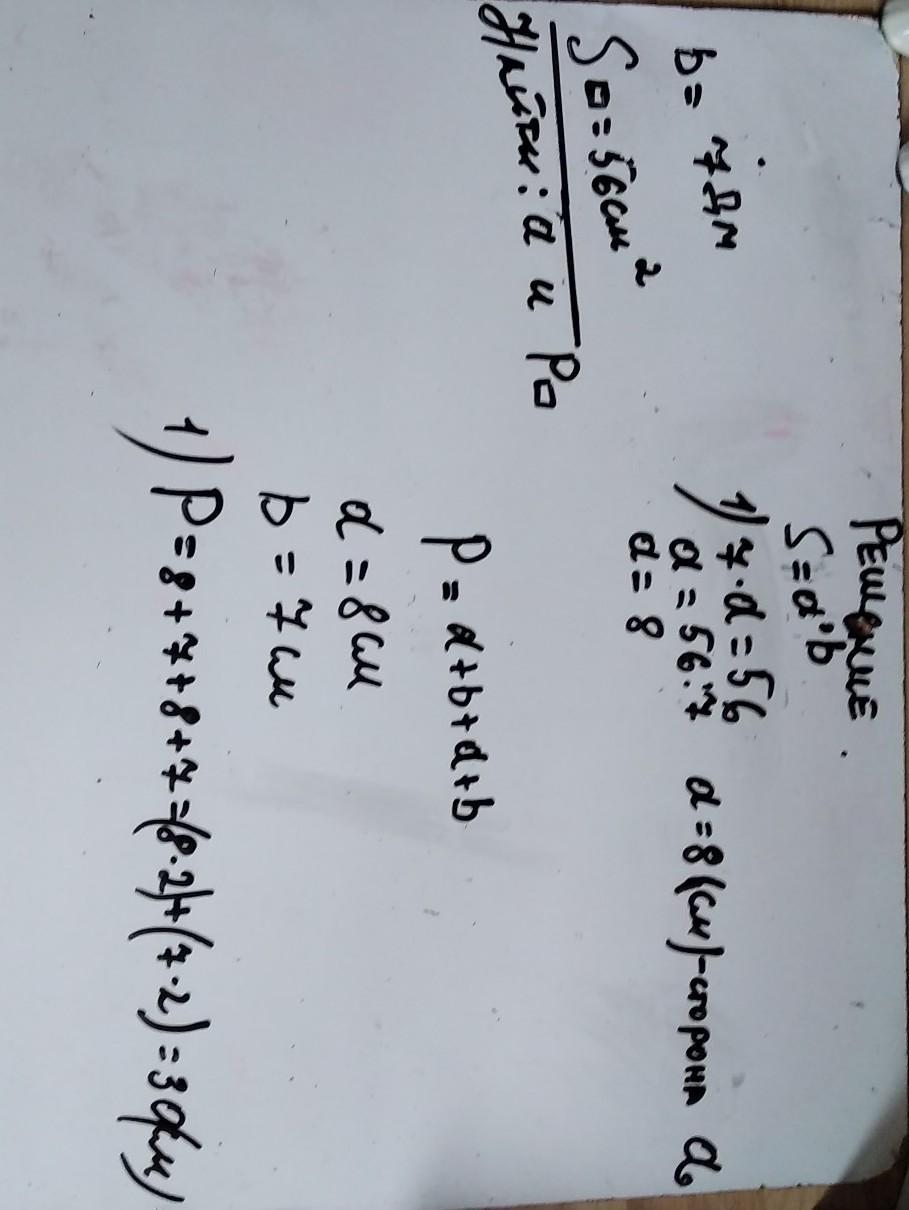 b = 7дм
S▫=56см²
Найти: a и P▫
РЕШЕНИЕ.
S=a·b
1) 7·a=56
a=56:7 a=8(см)-сторона a.
a=8
P=a+b+a+b
a=8см
b=7см
1) P=8+7+8+7=(8·2)+(7·2)=30(см)